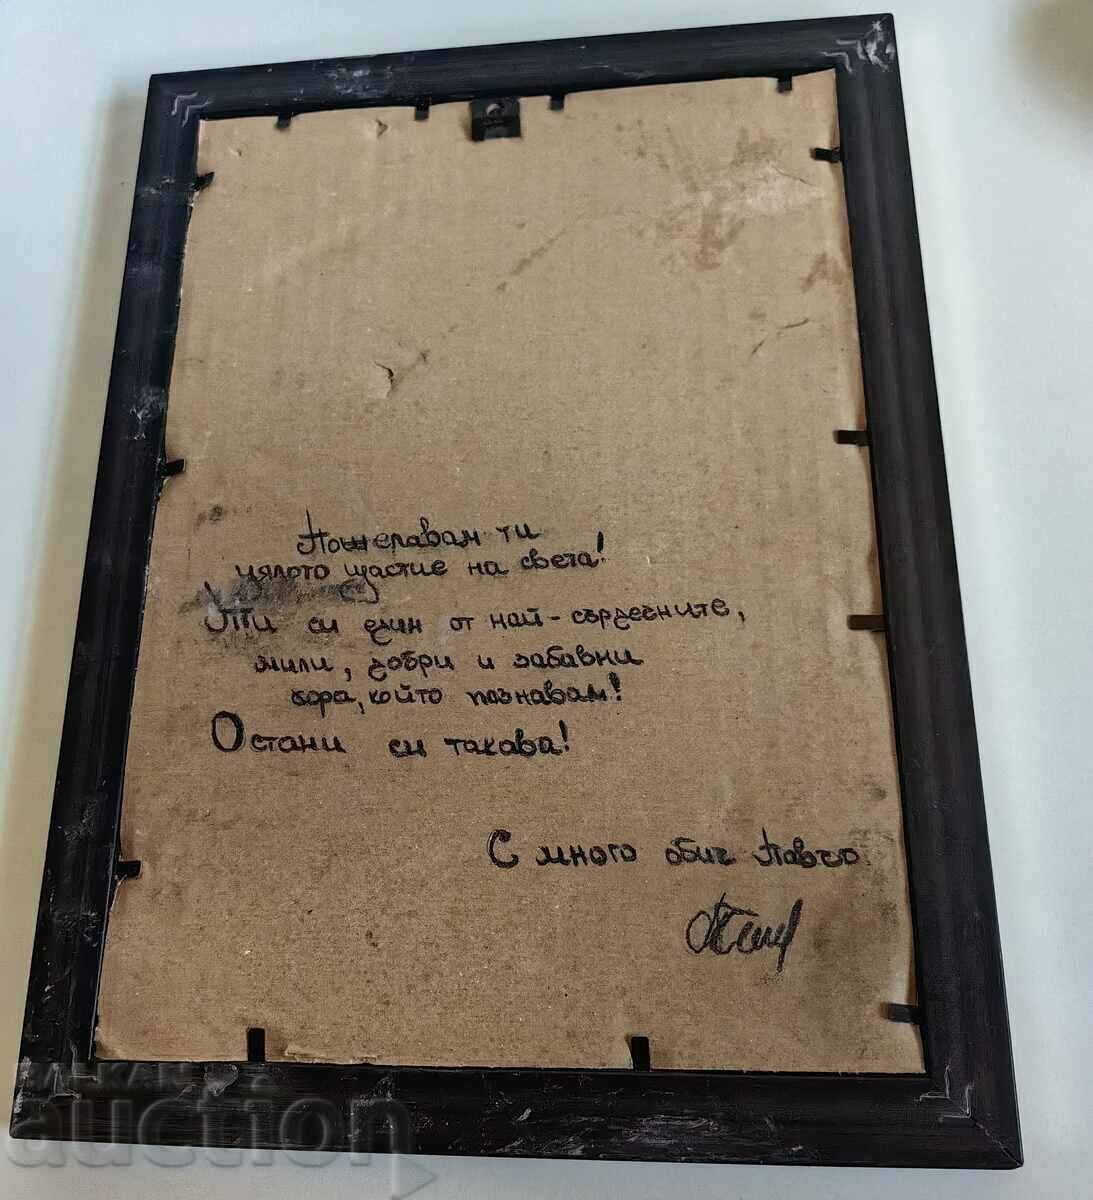 Пожелавам ти
цялото щастие на света!
Ти си един от най-сърдечните,
мили, добри и забавни
хора, който познавам!
Остани си такава!
С много обич Павчо
auction